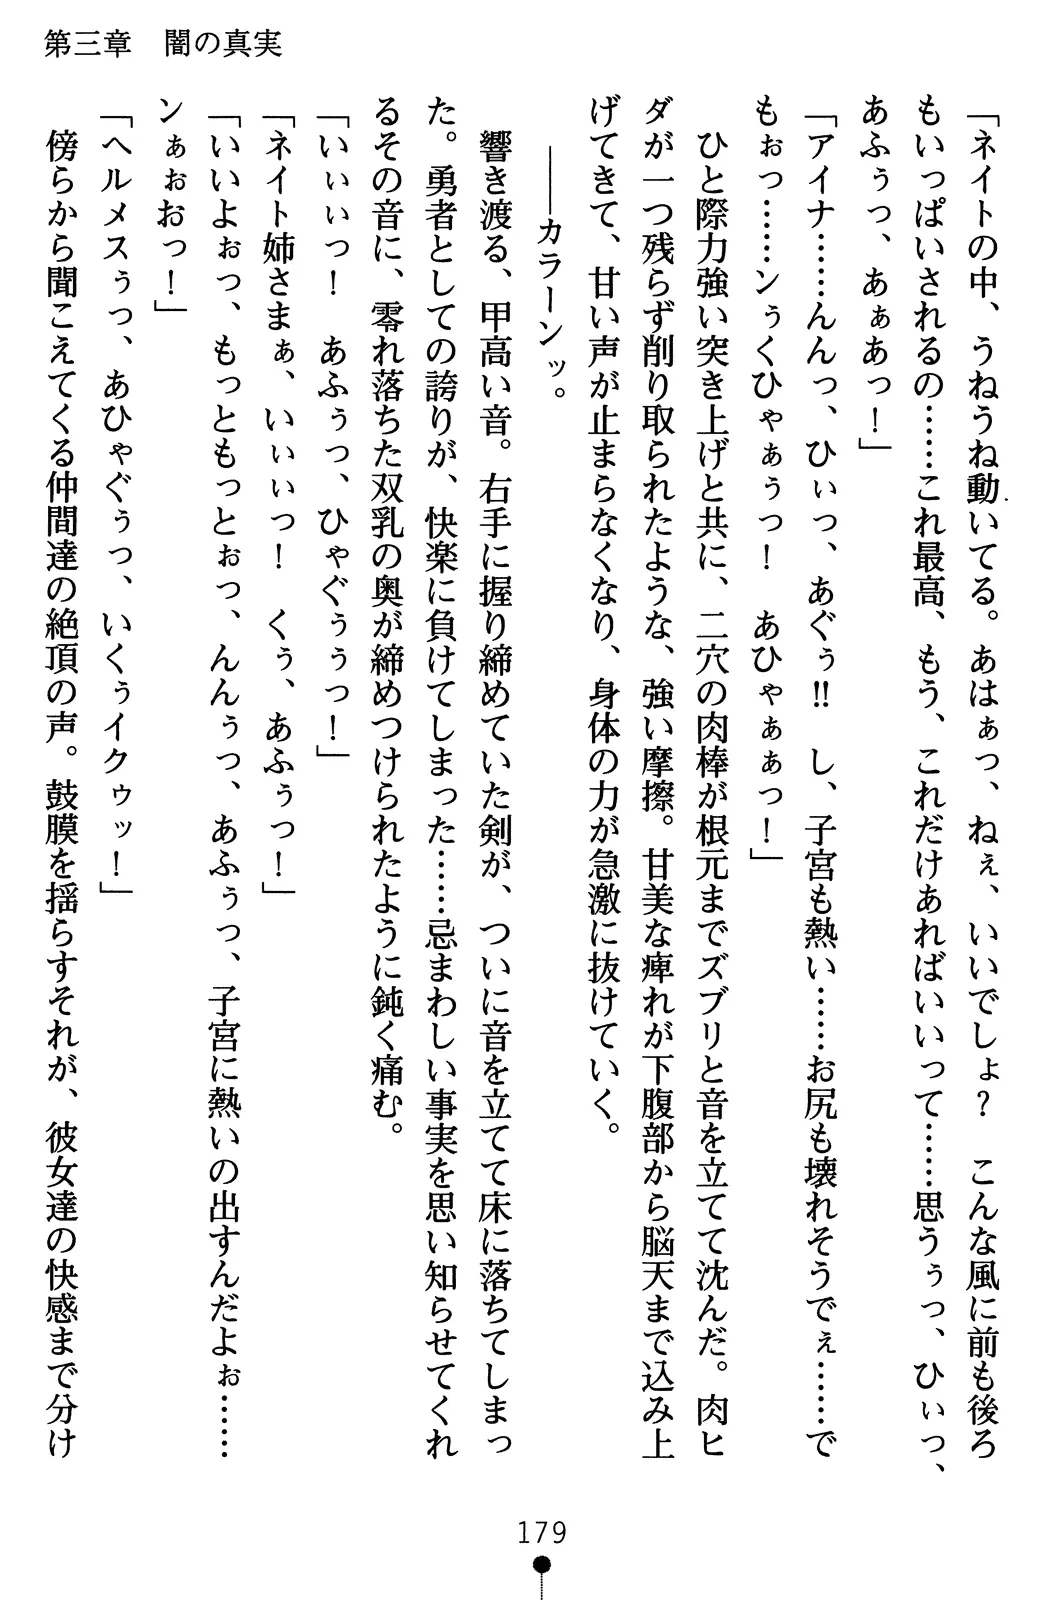 第三章　闇の真実
「ネイトの中、うねうね動いてる。あはぁっ、ねぇ、いいでしょ？　こんな風に前も後ろ
もいっぱいされるの……これ最高、もう、これだけあればいいって……思うぅっ、ひぃっ、
あふぅっ、あぁあっ！」
「アイナ……んんっ、ひぃっ、あぐぅ!!　し、子宮も熱い……お尻も壊れそうでぇ……で
もぉっ……ンぅくひゃぁぅっ！　あひゃぁぁっ！」
　ひと際力強い突き上げと共に、二穴の肉棒が根元までズブリと音を立てて沈んだ。肉ヒ
ダが一つ残らず削り取られたような、強い摩擦。甘美な痺れが下腹部から脳天まで込み上
げてきて、甘い声が止まらなくなり、身体の力が急激に抜けていく。
　――カラーンッ。
　響き渡る、甲高い音。右手に握り締めていた剣が、ついに音を立てて床に落ちてしまっ
た。勇者としての誇りが、快楽に負けてしまった……忌まわしい事実を思い知らせてくれ
るその音に、零れ落ちた双乳の奥が締めつけられたように鈍く痛む。
「いぃぃっ！　あふぅっ、ひゃぐぅぅっ！」
「ネイト姉さまぁ、いぃぃっ！　くぅ、あふぅっ！」
「いいよぉっ、もっともっとぉっ、んんぅっ、あふぅっ、子宮に熱いの出すんだよぉ……
ンぁぉおっ！」
「ヘルメスぅっ、あひゃぐぅっ、いくぅイクゥッ！」
　傍らから聞こえてくる仲間達の絶頂の声。鼓膜を揺らすそれが、彼女達の快感まで分け
179